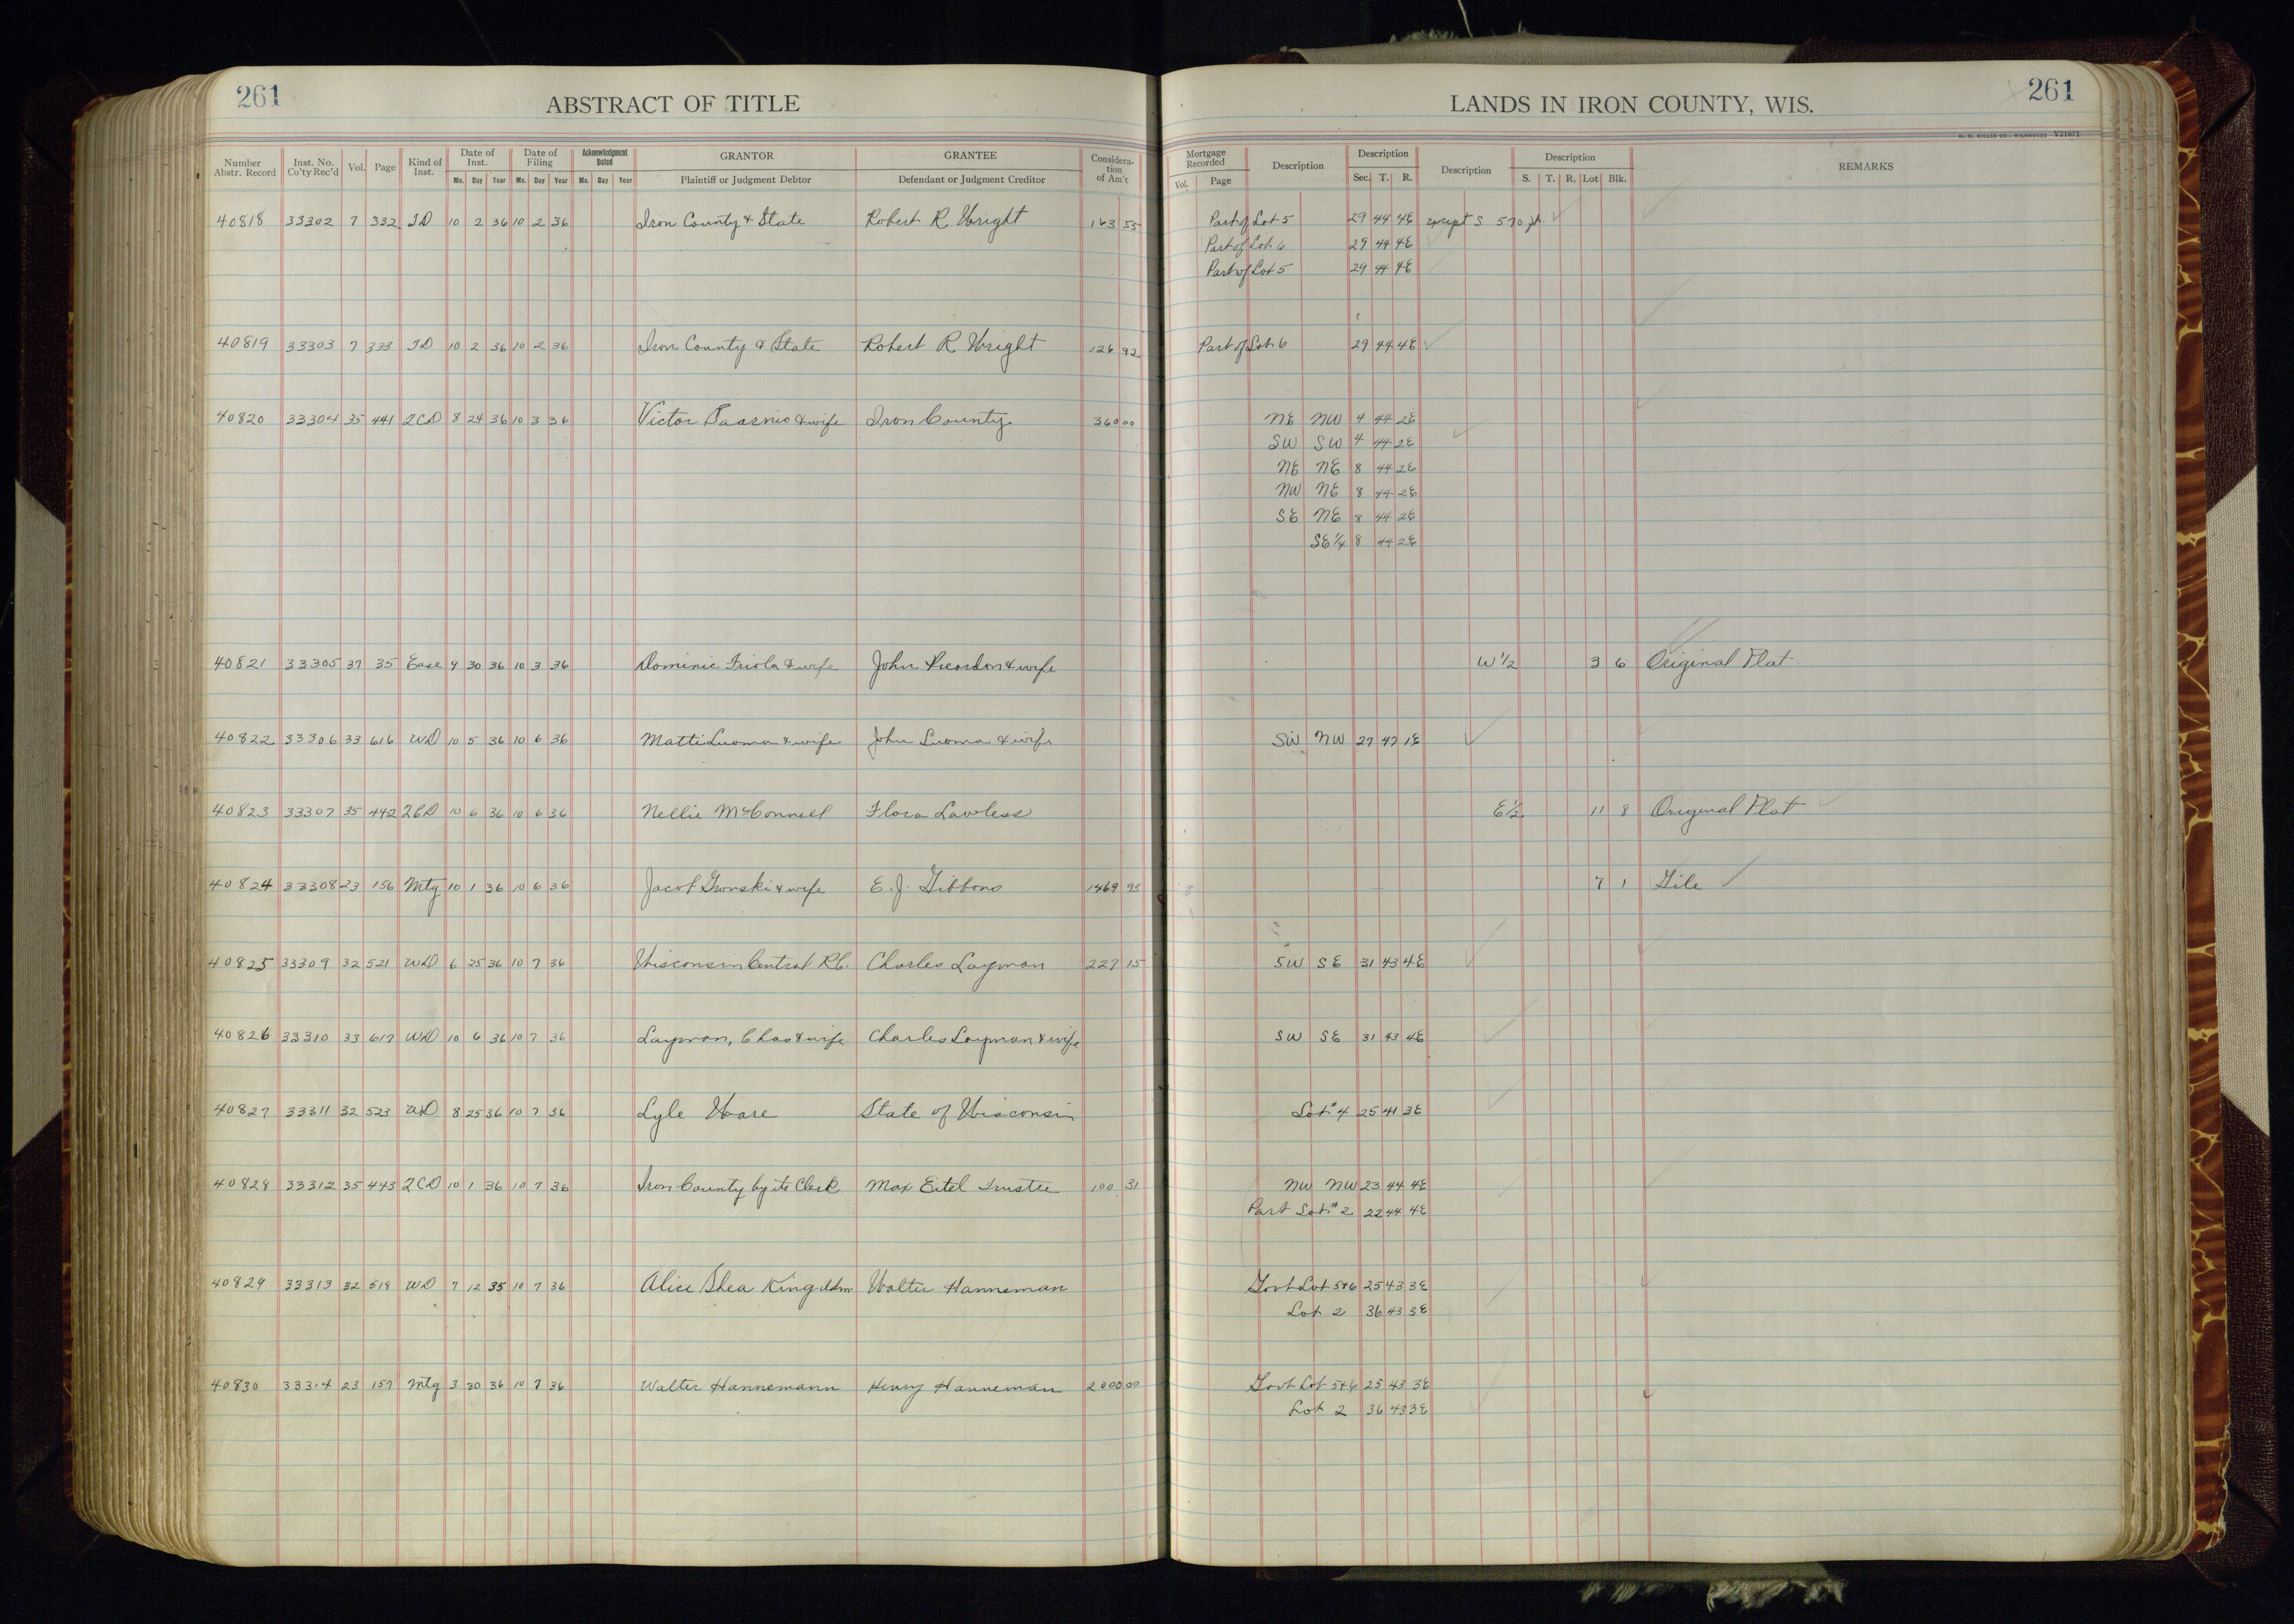 261
ABSTRACT OF TITLE
Number Abstr. Record Inst. No. Co'ty Rec'd Vol. Page Kind of Inst. Date of Inst. Mo. Day Year Date of Filing Mo. Day Year Acknowledgment Dated Mo. Day Year GRANTOR Plaintiff or Judgment Debtor GRANTEE Defendant or Judgment Creditor Consideration of Am't
LANDS IN IRON COUNTY, WIS.
261
Mortgage Recorded Vol. Page Description Description Sec. T. R. Description Description S. T. R. Lot Blk. REMARKS
40818 33302 7 332 TD 10 2 36 10 2 36 Iron County & State Robert R Wright 163 55 Part of Lot 5 29 44 4E except S 570 ft.
Part of Lot 6 29 44 4E
Part of Lot 5 29 44 4E
40819 33303 7 333 TD 10 2 36 10 2 36 Iron County & State Robert R Wright 126 92 Part of Lot 6 29 44 4E
40820 33304 35 441 2CD 8 24 36 10 3 36 Victor & wife Iron County 360 00 NE NW 4 44 2E
SW SW 4 44 2E
NE NE 8 44 2E
NW NE 8 44 2E
SE NE 8 44 2E
SE 1/4 8 44 2E
40821 33305 37 35 Ease 9 30 36 10 3 36 Dominic Friola & wife John Reardon & wife W 1/2 3 6 Original Plat
40822 33306 33 616 WD 10 5 36 10 6 36 Matti Luoma & wife John Luoma & wife SW NW 27 47 1E
40823 33307 35 442 2CD 10 6 36 10 6 36 Nellie McConnell Flora Lawless E 1/2 11 8 Original Plat
40824 33308 23 156 Mtg 10 1 36 10 6 36 Jacob & wife E. J. Gibbons 1469 93 7 1 Gile
40825 33309 32 521 WD 6 25 36 10 7 36 Wisconsin Central RC. Charles Layman 227 15 SW SE 31 43 4E
40826 33310 33 617 WD 10 6 36 10 7 36 Layman, Chas & wife Charles Layman & wife SW SE 31 43 4E
40827 33311 32 523 WD 8 25 36 10 7 36 Lyle Ware State of Wisconsin Lot #4 25 41 3E
40828 33312 35 443 2CD 10 1 36 10 7 36 Iron County by its Clerk Max Eitel Trustee 100 31 NW NW 23 44 4E
Part Lot #2 22 44 4E
40829 33313 32 518 WD 7 12 35 10 7 36 Alice Shea King Adm Walter Hanneman Govt Lot 5+6 25 43 3E
Lot 2 36 43 3E
40830 33314 23 157 Mtg 3 30 36 10 7 36 Walter Hannemann Henry Hanneman 2000 00 Govt Lot 5+6 25 43 3E
Lot 2 36 43 3E